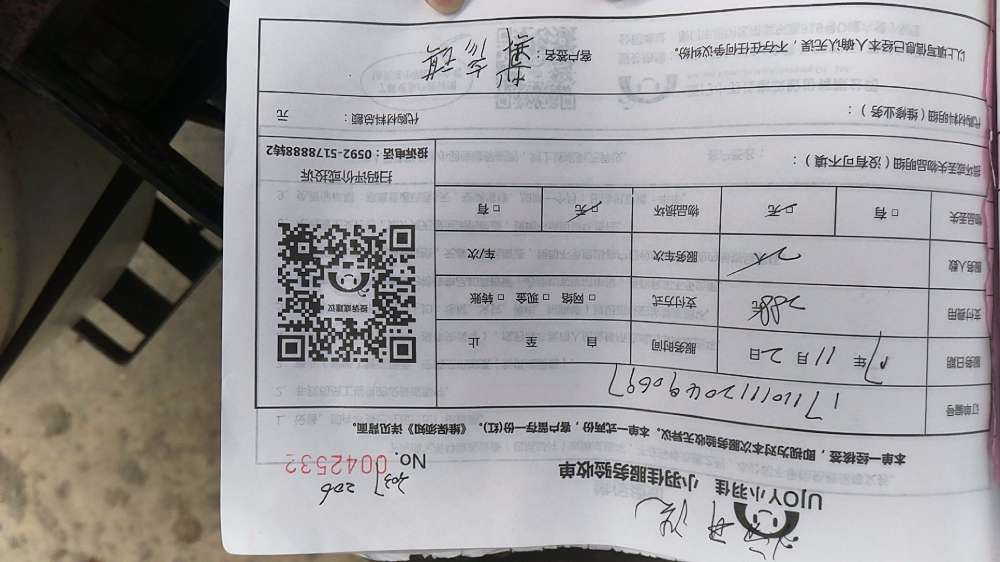 UJOY小羽佳 小羽佳服务验收单
NO. 0042532
本单一经核签，即视为对本次服务验收无异议。本单一式两份，客户留存一份(红)。《维保须知》详见背面。
订单编号 1711011120490697
服务日期 17年11月2日 服务时间 自 至 止
支付费用 288元 支付方式 □ 网络 □ 现金 □ 转账
服务人数 2人 服务车次 车/次
物品丢失 □ 有 □ 无 物品损坏 □ 无 □ 有
损坏或丢失物品明细（没有可不填）：
投诉或建议
扫码评价或投诉
投诉电话：0592-5178888转2
代购材料明细（维修业务）： 代购材料总额： 元
以上填写信息已经本人确认无误，不存在任何争议纠纷。 客户签名：